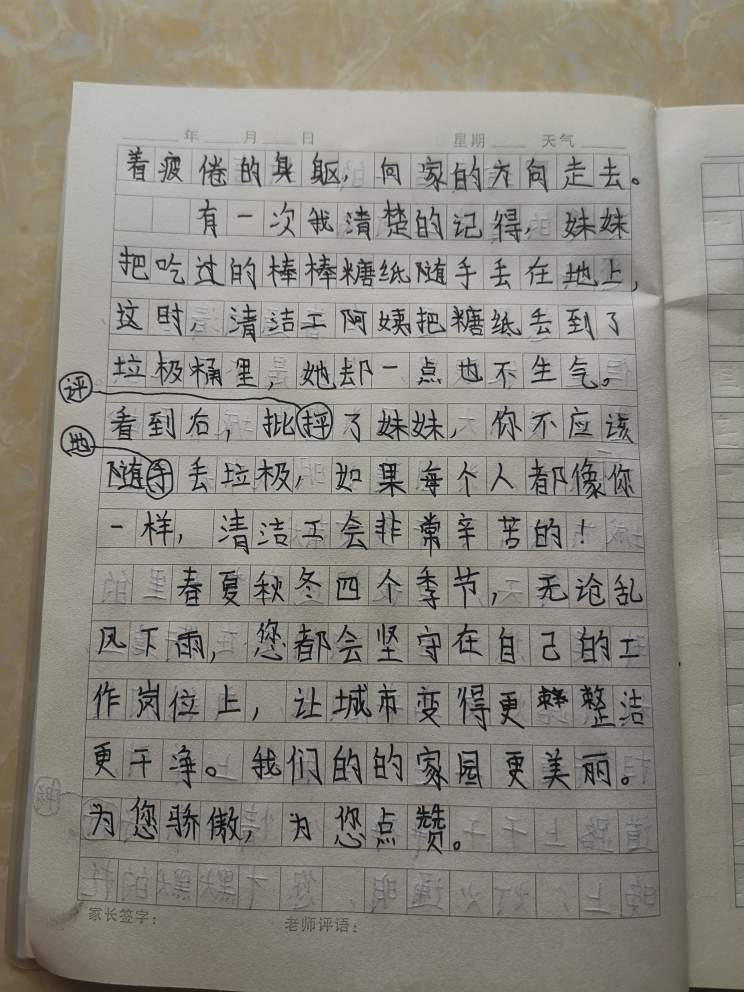 年 月 日 星期 天气
着疲倦的身躯，向家的方向走去。
有一次我清楚的记得，妹妹
把吃过的棒棒糖纸随手丢在地上，
这时，清洁工阿姨把糖纸丢到了
垃极桶里，她却一点也不生气。
评
看到右，批抨了妹妹，你不应该
地
随手丢垃极，如果每个人都像你
一样，清洁工会非常辛苦的！
春夏秋冬四个季节，无论乱
风下雨，您都会坚守在自己的工
作岗位上，让城市变得更整洁
更干净。我们的的家园更美丽。
为您骄傲，为您点赞。
家长签字： 老师评语：